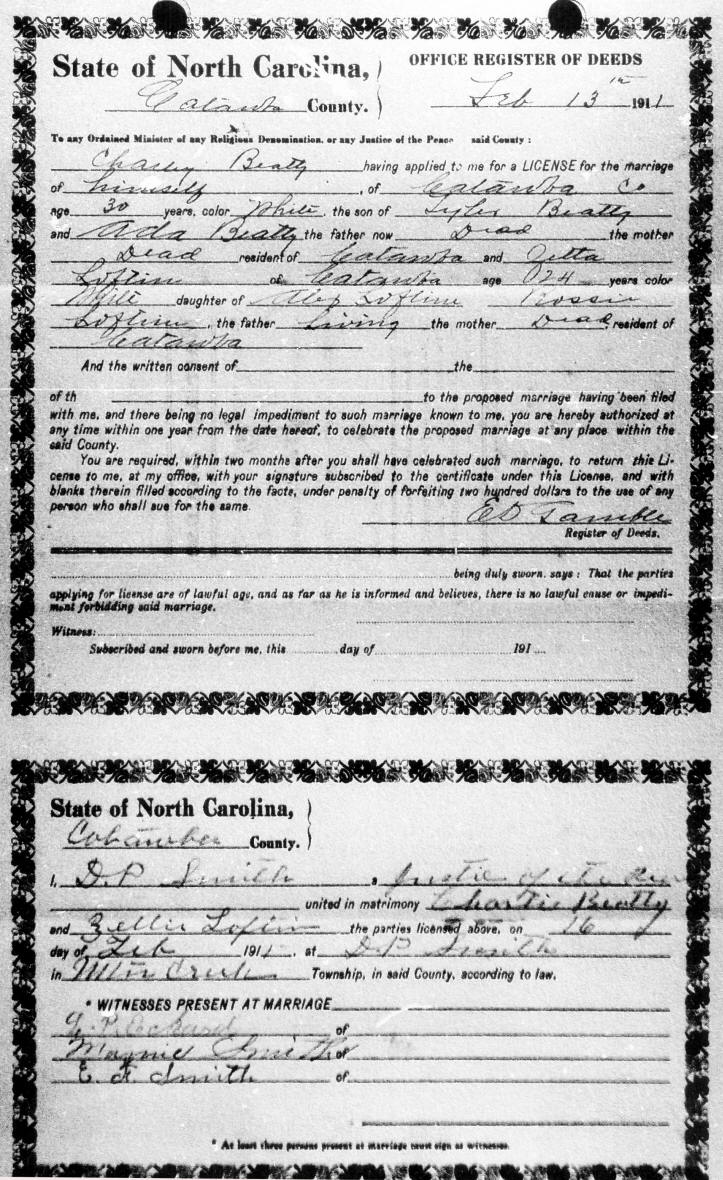 State of North Carolina,
OFFICE REGISTER OF DEEDS
Catawba County.
Feb 13th 1911
To any Ordained Minister of any Religious Denomination, or any Justice of the Peace said County:
Charley Beatty having applied to me for a LICENSE for the marriage
of himself, of Catawba Co
age 30 years, color White, the son of Tyler Beatty
and Ada Beatty the father now Dead the mother
Dead resident of Catawba and Zetta
Loftin of Catawba age 24 years color
White daughter of Alex Loftin Rossie
Loftin, the father living the mother Dead, resident of
Catawba
And the written consent of the
of th to the proposed marriage having been filed
with me, and there being no legal impediment to such marriage known to me, you are hereby authorized at
any time within one year from the date hereof, to celebrate the proposed marriage at any place within the
said County.
You are required, within two months after you shall have celebrated such marriage, to return this Li-
cense to me, at my office, with your signature subscribed to the certificate under this License, and with
blanks therein filled according to the facts, under penalty of forfeiting two hundred dollars to the use of any
person who shall sue for the same.
Register of Deeds.
being duly sworn, says: That the parties
applying for license are of lawful age, and as far as he is informed and believes, there is no lawful cause or impedi-
ment forbidding said marriage.
Witness:
Subscribed and sworn before me, this day of 191
State of North Carolina,
County.
I, D.P Smith a Justic of the
united in matrimony Charlie Beatty
and Zellie Loftin the parties licensed above, on 16
day of Feb 1911, at D P Smith
in Mtn Creek Township, in said County, according to law.
* WITNESSES PRESENT AT MARRIAGE
of
Smith of
E. F. Smith of
* At least three persons present at marriage must sign as witnesses.